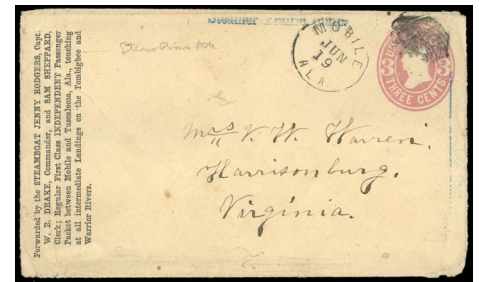 Forwarded by the STEAMBOAT JENNY RODGERS, Capt.
W. B. DRAKE, Commander, and SAM SHEPPARD,
Clerk; Regular First Class INDEPENDENT Passenger
Packet between Mobile and Tuscaloosa, Ala., touching
at all intermediate Landings on the Tombigbee and
Warrior Rivers.
Steamer
MOBILE
JUN
19
ALA
3 3
THREE CENTS
Mrs. V. W. Warren.
Harrisonburg.
Virginia.